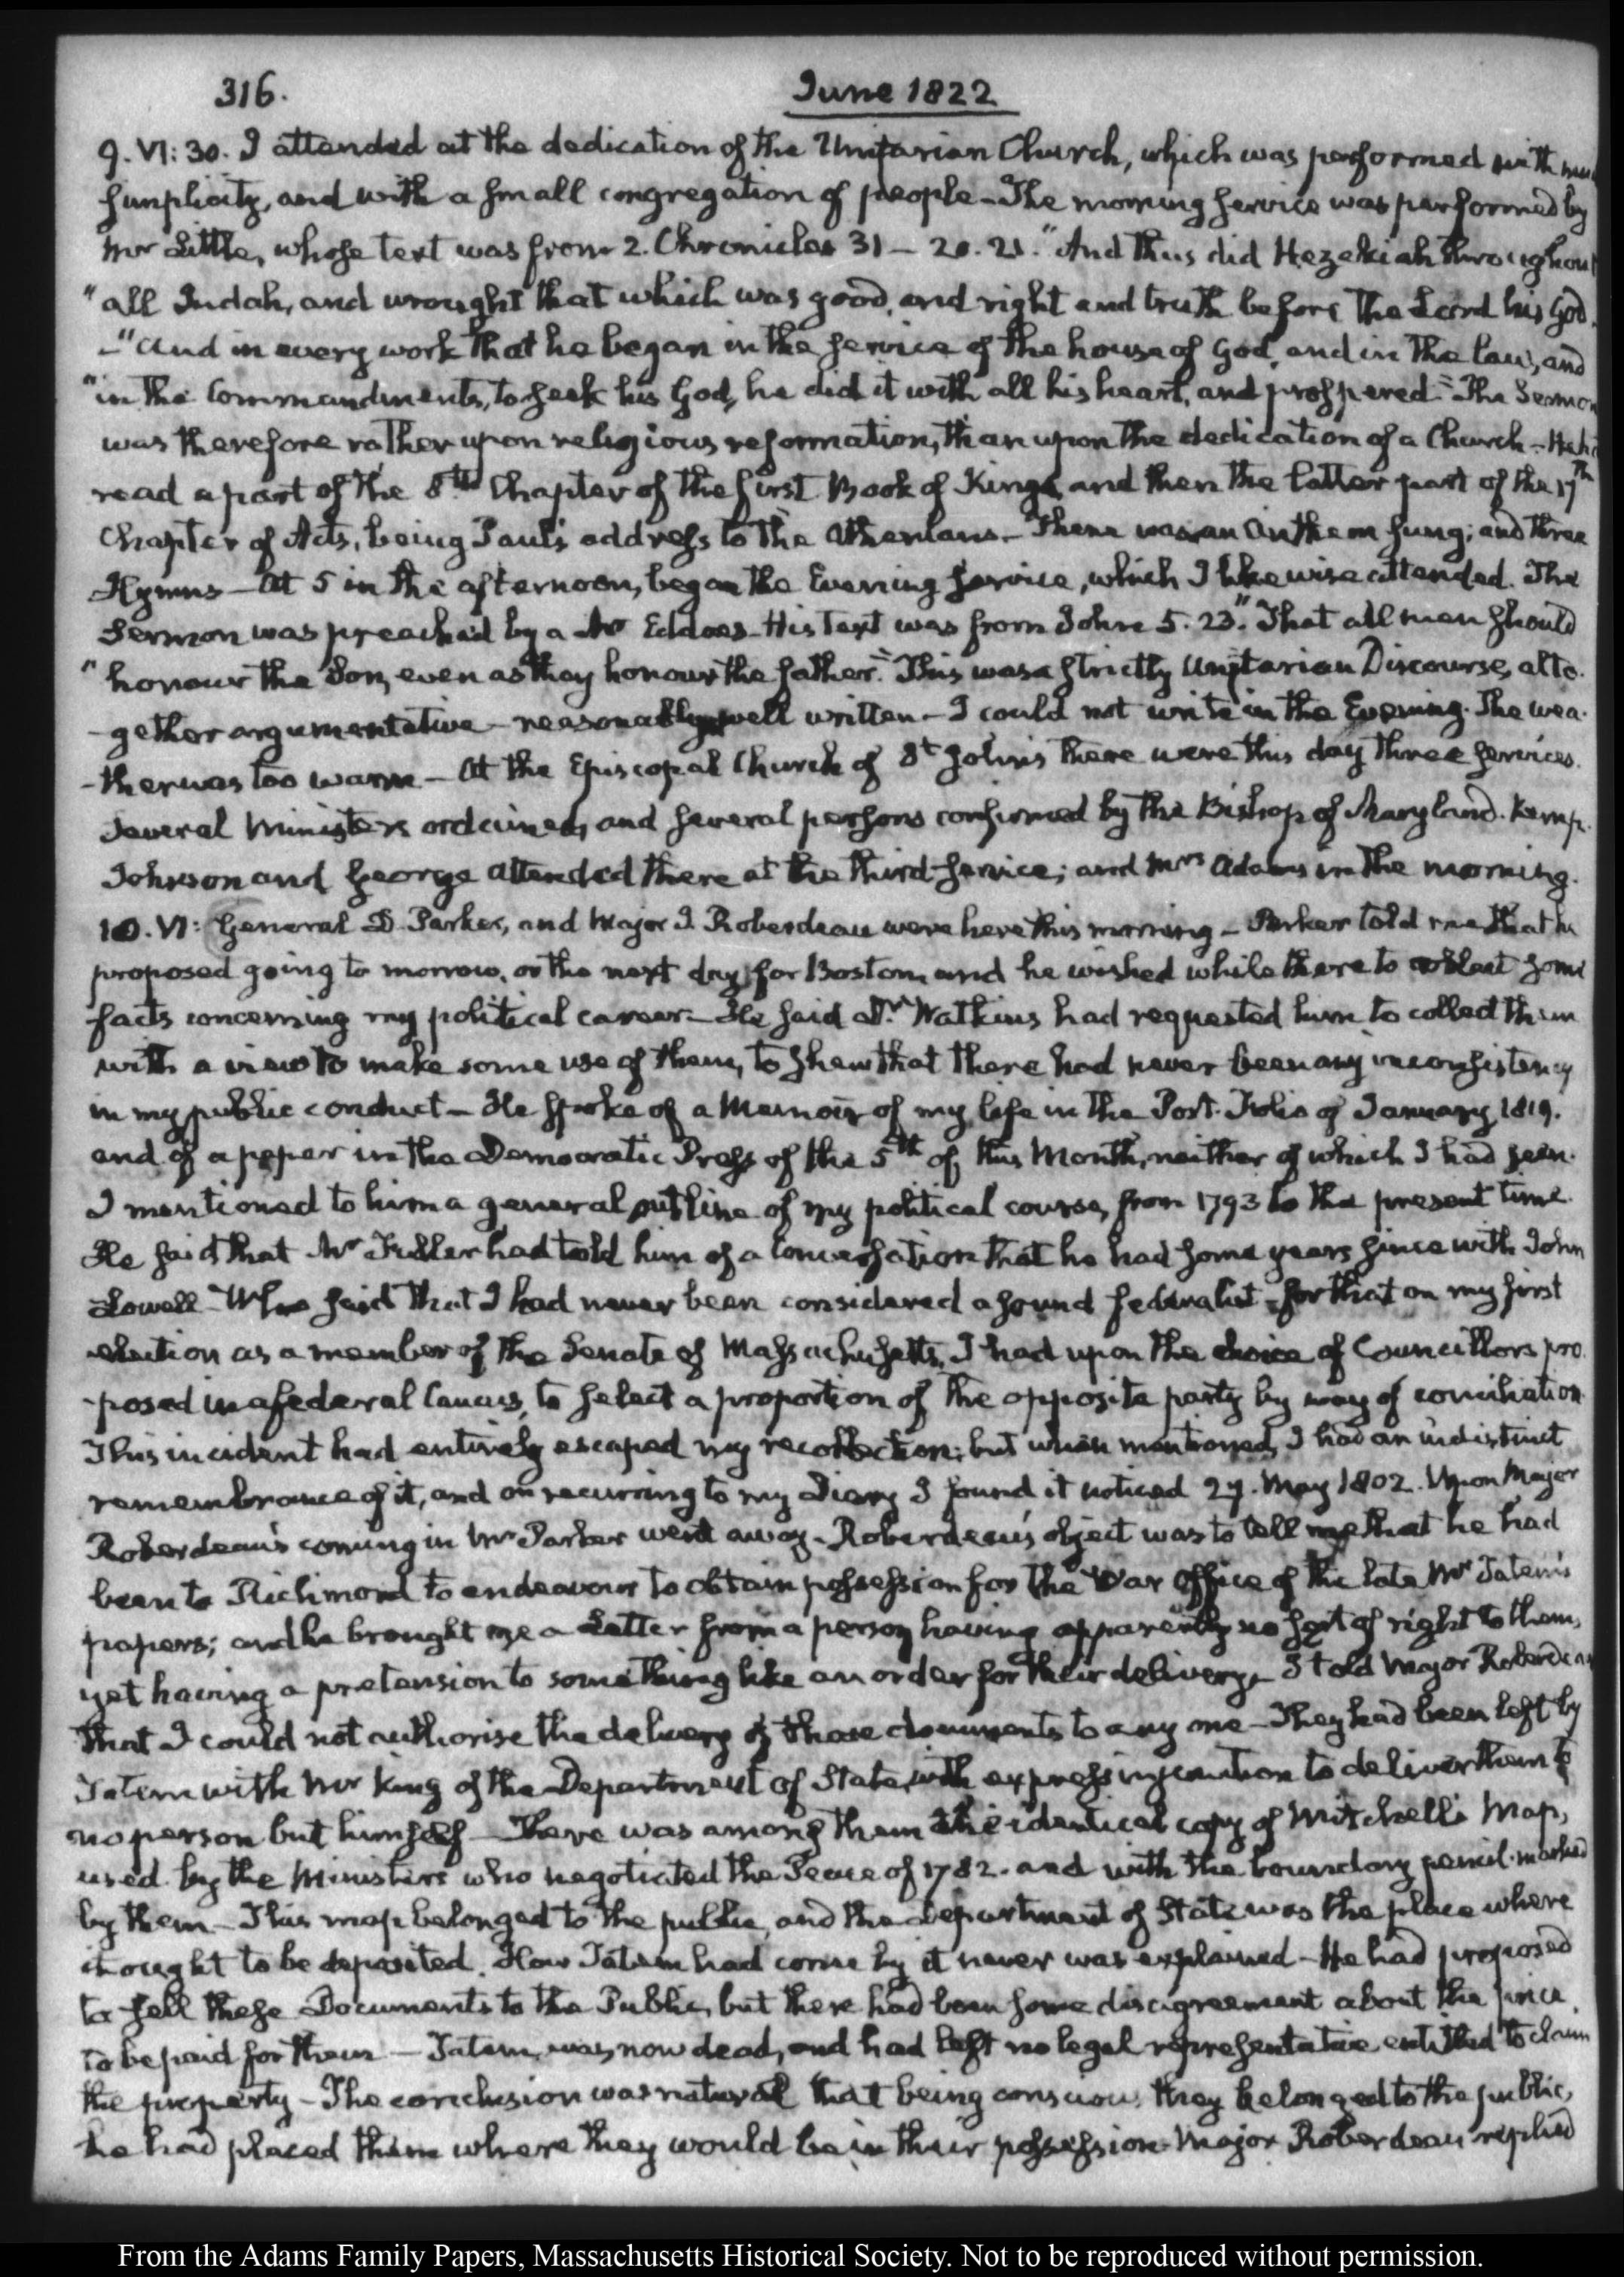 316.
June 1822
9. VI: 30. I attended at the dedication of the Unitarian Church, which was performed with
simplicity, and with a small congregation of people - The morning service was performed by
Mr Little, whose text was from 2. Chronicles 31 - 20. 21. "And thus did Hezekiah throughout
"all Judah, and wrought that which was good, and right and truth before the Lord his God.
-"And in every work that he began in the service of the house of God, and in the law, and
"in the Commandments, to seek his God, he did it with all his heart, and prospered." The Sermon
was therefore rather upon religious reformation, than upon the dedication of a Church -
read a part of the 8th Chapter of the first Book of Kings, and then the latter part of the 17th
Chapter of Acts, being Paul's address to the Athenians - There was an Anthem sung; and three
Hymns - At 5 in the afternoon, began the Evening service, which I likewise attended. The
Sermon was preached by a Mr Eddoes - His Text was from John 5. 23. "That all men should
"honour the Son, even as they honour the father." This was a strictly Unitarian Discourse, alto-
-gether argumentative - reasonably well written - I could not write in the Evening. The wea-
-ther was too warm - At the Episcopal Church of St John's there were this day three services.
Several Ministers ordained, and several persons confirmed by the Bishop of Maryland. Kemp.
Johnson and George attended there at the third service; and Mrs Adams in the morning.
10. VI: General D. Parker, and Major I. Roberdeau were here this morning - Parker told me that he
proposed going to morrow, or the next day, for Boston, and he wished while there to collect some
facts concerning my political career - He said Dr Watkins had requested him to collect them
with a view to make some use of them, to shew that there had never been any inconsistency
in my public conduct - He spoke of a Memoir of my life in the Port-Folio of January 1819.
and of a paper in the Democratic Press of the 5th of this Month, neither of which I had seen.
I mentioned to him a general outline of my political course, from 1793 to the present time.
He said that Mr Fuller had told him of a conversation that he had some years since with John
Lowell - Who said that I had never been considered a sound federalist - for that on my first
election as a member of the Senate of Massachusetts, I had upon the choice of Councillors pro-
-posed in a federal Caucus, to select a proportion of the opposite party by way of conciliation.
This incident had entirely escaped my recollection; but when mentioned, I had an indistinct
remembrance of it, and on recurring to my Diary I found it noticed 27. May 1802. Upon Major
Roberdeau's coming in Mr Parker went away - Roberdeau's object was to tell me that he had
been to Richmond to endeavour to obtain possession for the War Office of the late Mr Tatem's
papers; and he brought me a Letter from a person having apparently no sort of right to them,
yet having a pretension to something like an order for their delivery - I told Major Roberdeau
that I could not authorise the delivery of those documents to any one - They had been left by
Tatem with Mr King of the Department of State, with express injunction to deliver them to
no person but himself - There was among them the identical copy of Mitchell's Map,
used by the Ministers who negotiated the Peace of 1782. and with the boundary pencil-marked
by them - This map belonged to the public, and the Department of State was the place where
it ought to be deposited. How Tatem had come by it never was explained - He had proposed
to sell these Documents to the Public, but there had been some disagreement about the price
to be paid for them - Tatem was now dead, and had left no legal representative entitled to claim
the property - The conclusion was natural that being conscious they belonged to the public,
he had placed them where they would be in their possession - Major Roberdeau replied
From the Adams Family Papers, Massachusetts Historical Society. Not to be reproduced without permission.